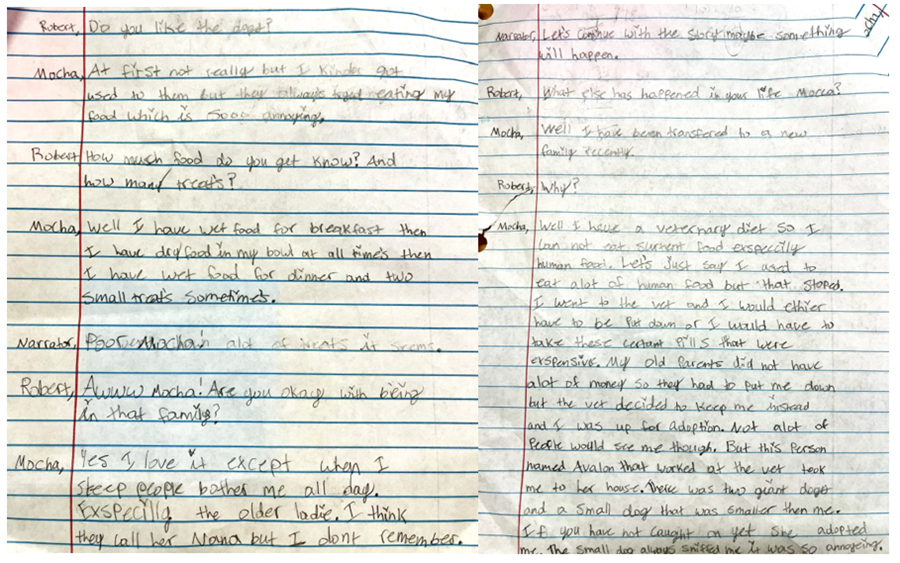 Robert, Do you like the dogs?
Mocha, At first not really but I kinda got
used to them but they always eating my
food which is sooo annoying.
Robert How much food do you get know? And
how many treats?
Mocha, Well I have wet food for breakfast then
I have dry food in my bowl at all times then
I have wet food for dinner and two
small treats sometimes.
Narrator, Poor Mocha! alot of treats it seems.
Robert, Awww Mocha! Are you okay with being
in that family?
Mocha, Yes I love it except when I
sleep people bother me all day.
Exspecilly the older ladie. I think
they call her Nana but I dont remember.
Narrator, Let's contnue with the story maybe something
will happen.
Robert, What else has happened in your life Mocca?
Mocha, Well I have been transfered to a new
family recently.
Robert, Why?
Mocha, Well I have a veternary diet so I
can not eat surtent food exspecilly
human food. Let's just say I used to
eat alot of human food but that stoped.
I went to the vet and I would ethier
have to be put down or I would have to
take these certant pills that were
exspensive. My old parents did not have
alot of money so they had to put me down
but the vet decided to keep me instead
and I was up for adoption. Not alot of
people would see me though. But this person
named Avalon that worked at the vet took
me to her house. There was two giant dogs
and a small dog that was smaller then me.
If you have not caught on yet she adopted
me. The small dog always sniffed me it was so annoyeing.